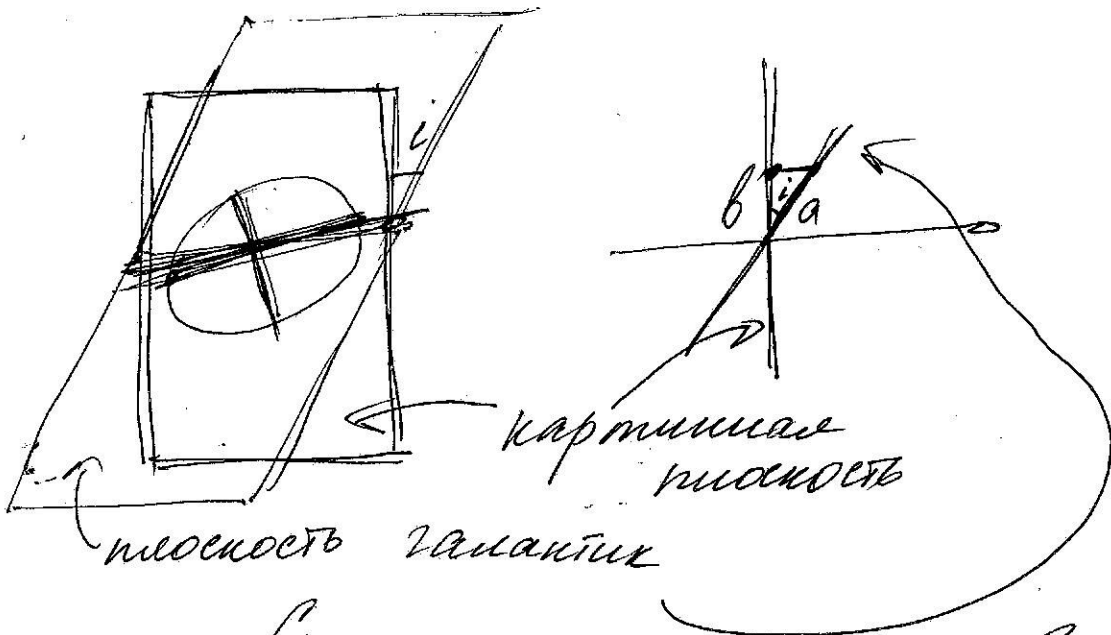 i
в i а
картинная
плоскость
плоскость галактик